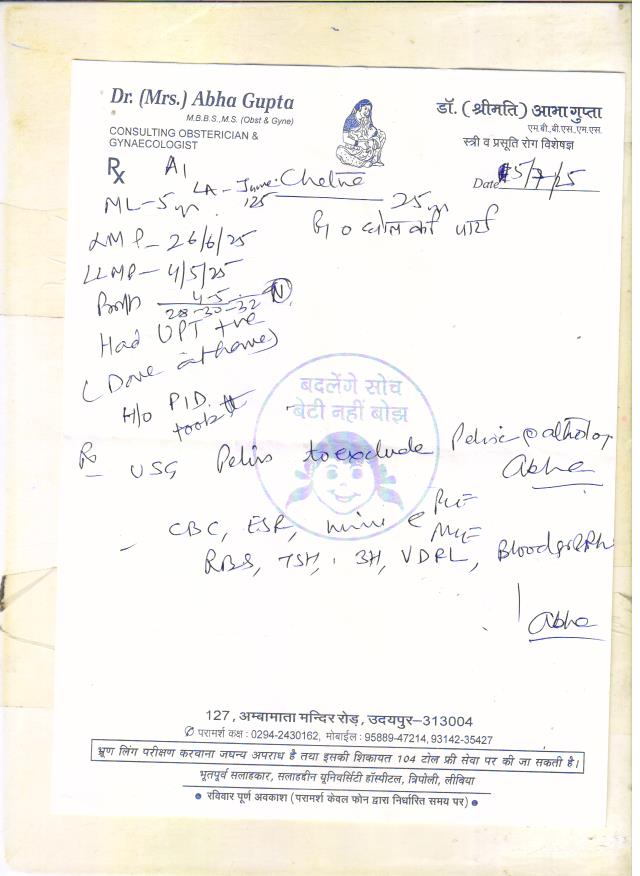 Dr. (Mrs.) Abha Gupta
M.B.B.S.,M.S. (Obst & Gyne)
CONSULTING OBSTERICIAN &
GYNAECOLOGIST
डॉ. (श्रीमति) आभा गुप्ता
एम.बी.,बी.एस.,एम.एस.
स्त्री व प्रसूति रोग विशेषज्ञ
Date 5/7/25
Rx A1
LA - June 125
25 yr
ML - 5 yr
LMP - 26/6/25
LLMP - 4/5/25
4-5
28-30-32
N
Had UPT +ve
(Done at home)
H/o PID.
took
बदलेंगे सोच
बेटी नहीं बोझ
Rx USG Pelvis to exclude Pelvic pathology
Abha
- CBC, ESR, urine
RBS, TSH, VDRL, Blood gr & Rh
Abha
127, अम्बामाता मन्दिर रोड़, उदयपुर-313004
परामर्श कक्ष : 0294-2430162, मोबाईल : 95889-47214, 93142-35427
भ्रूण लिंग परीक्षण करवाना जघन्य अपराध है तथा इसकी शिकायत 104 टोल फ्री सेवा पर की जा सकती है।
भूतपूर्व सलाहकार, सलाहद्दीन यूनिवर्सिटी हॉस्पीटल, त्रिपोली, लीबिया
● रविवार पूर्ण अवकाश (परामर्श केवल फोन द्वारा निर्धारित समय पर) ●